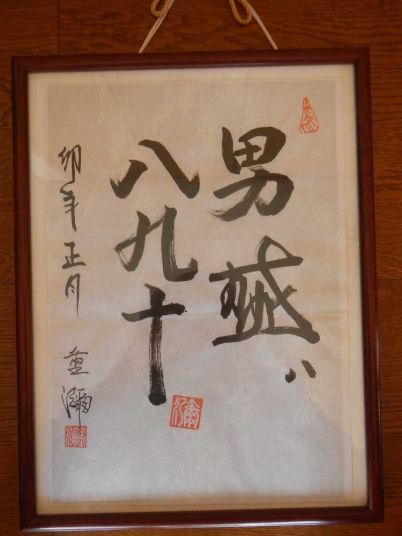 男盛ハ
八九十
卯年正月 重